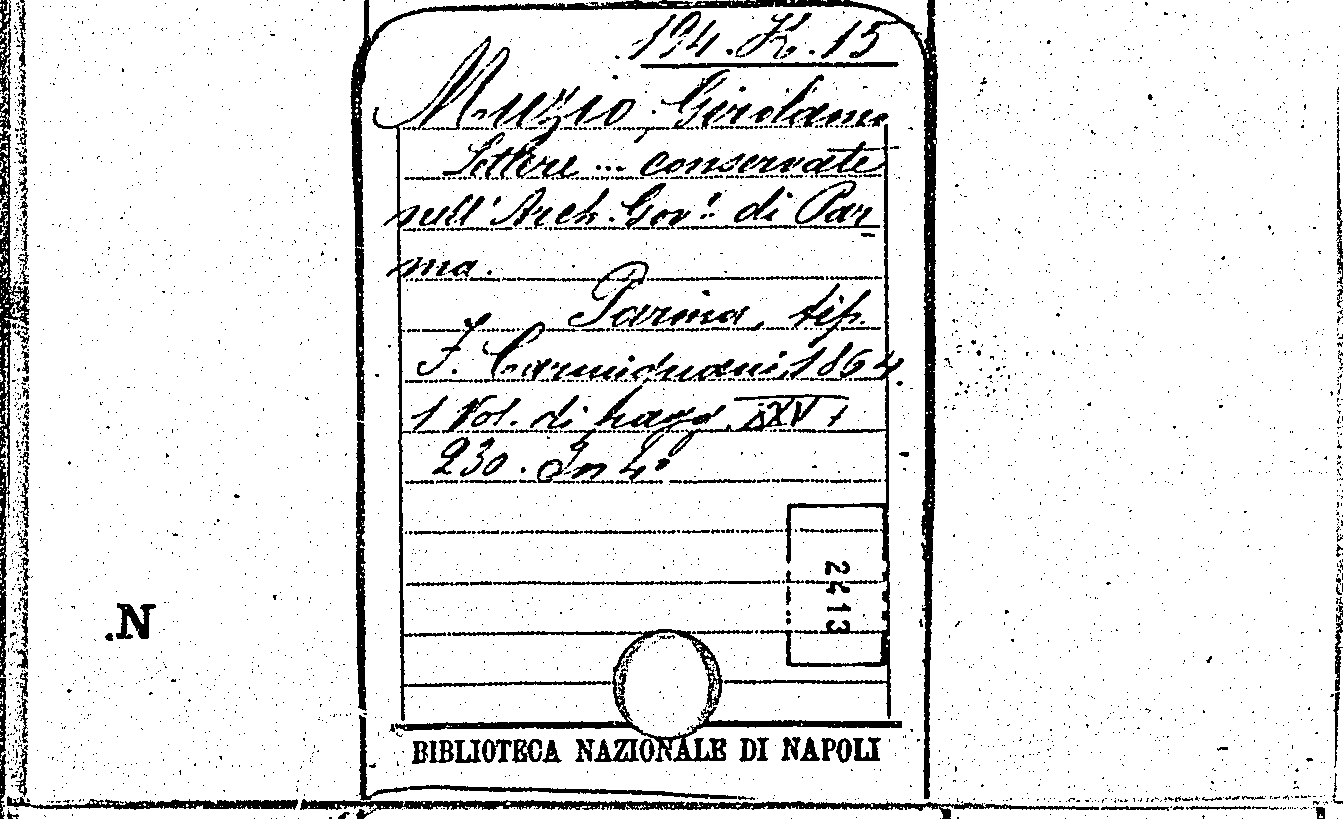 194.K.15
Muzio Girolamo
Lettere ... conservate
nell'Arch. Gov. di Par
ma.
Parma, tip.
F. Carmignani, 1864.
1 Vol. di pagg. XXV +
230. In 4º
2413
.N
BIBLIOTECA NAZIONALE DI NAPOLI